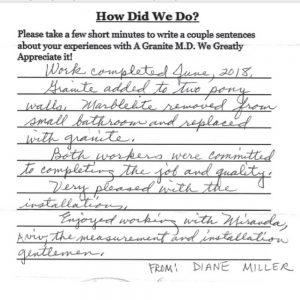 How Did We Do?
Please take a few short minutes to write a couple sentences
about your experiences with A Granite M.D. We Greatly
Appreciate it!
Work completed June, 2018.
Granite added to two pony
walls. Marblelite removed from
small bathroom and replaced
with granite.
Both workers were committed
to completing the job and quality.
Very pleased with the
installation.
Enjoyed working with Miranda,
Aviv, the measurement and installation
gentlemen.
FROM: DIANE MILLER